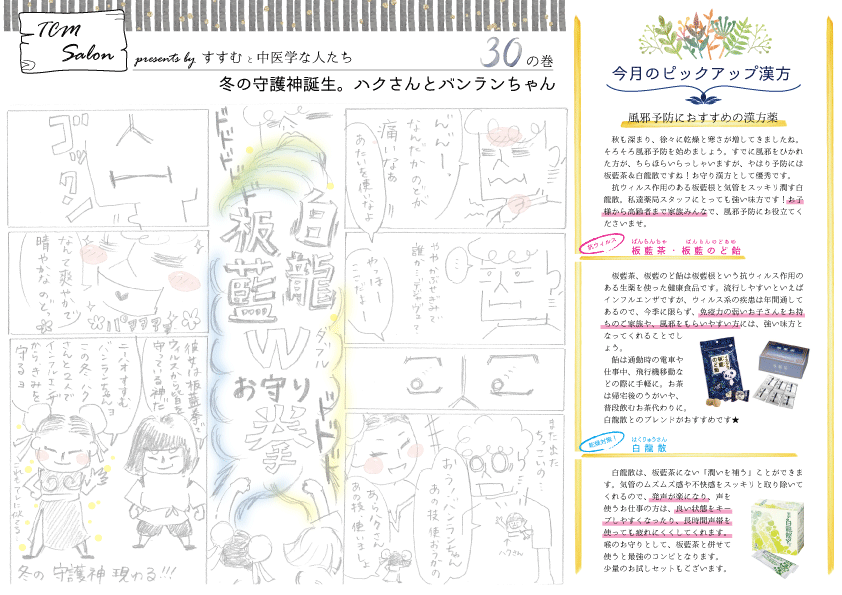 TCM
Salon
presents by すすむと中医学な人たち
30の巻
冬の守護神誕生。ハクさんとバンランちゃん
んん…
なんだか のどが
痛いなぁ
あたいを使いなよ
ややかぶせぎみで
誰…？デジャヴ？
やっほー
ここだよ
また出た
ちっこいの…
ハクさん
おーい バンランちゃん
あの技 使おうかの
あらハクさん
あの技、使いましょ
ドドドドド
白龍
板藍
W
ダブル
お守り
拳
ドドド
ゴックン
なんて爽やかで
晴やかなのど。
パッカーン
彼女は板藍拳で
ウィルスから皆を
守っている神だ
ニーハオ すすむ
バンランちゃんヨ
この冬、ハク
さんと2人で
インフルエンザ
からきみを
守るヨ
冬の守護神 現わる!!!
今月のピックアップ漢方
風邪予防におすすめの漢方薬
秋も深まり、徐々に乾燥と寒さが増してきましたね。
そろそろ風邪予防を始めましょう。すでに風邪をひかれ
た方が、ちらほらいらっしゃいますが、やはり予防には
板藍茶&白龍散ですね！お守り漢方として優秀です。
抗ウィルス作用のある板藍根と気管をスッキリ潤す白
龍散。私達薬局スタッフにとっても強い味方です！お子
様から高齢者まで家族みんなで、風邪予防にお役立てく
ださいませ。
抗ウィルス
ばんらんちゃ ばんらんのどあめ
板藍茶・板藍のど飴
板藍茶、板藍のど飴は板藍根という抗ウィルス作用の
ある生薬を使った健康食品です。流行しやすいといえば
インフルエンザですが、ウィルス系の疾患は年間通して
あるので、今季に限らず、免疫力の弱いお子さんをお持
ちのご家族や、風邪をもらいやすい方には、強い味方と
なってくれることでし
ょう。
飴は通勤時の電車や
仕事中、飛行機移動な
どの際に手軽に。お茶
は帰宅後のうがいや、
普段飲むお茶代わりに。
白龍散とのブレンドがおすすめです★
乾燥対策！
はくりゅうさん
白龍散
白龍散は、板藍茶にない「潤いを補う」ことができま
す。気管のムズムズ感や不快感をスッキリと取り除いて
くれるので、発声が楽になり、声を
使うお仕事の方は、良い状態をキー
プしやすくなったり、長時間声帯を
使っても疲れにくくしてくれます。
喉のお守りとして、板藍茶と併せて
使うと最強のコンビとなります。
少量のお試しセットもございます。